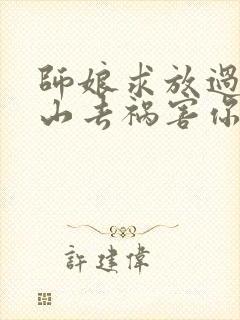 師娘求放過
山去禍害你
許建偉